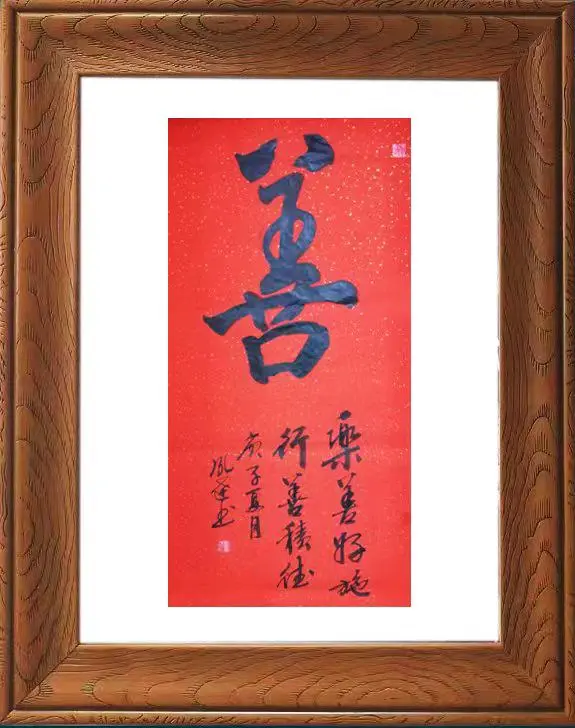 善
樂善好施
行善積德
庚子夏月